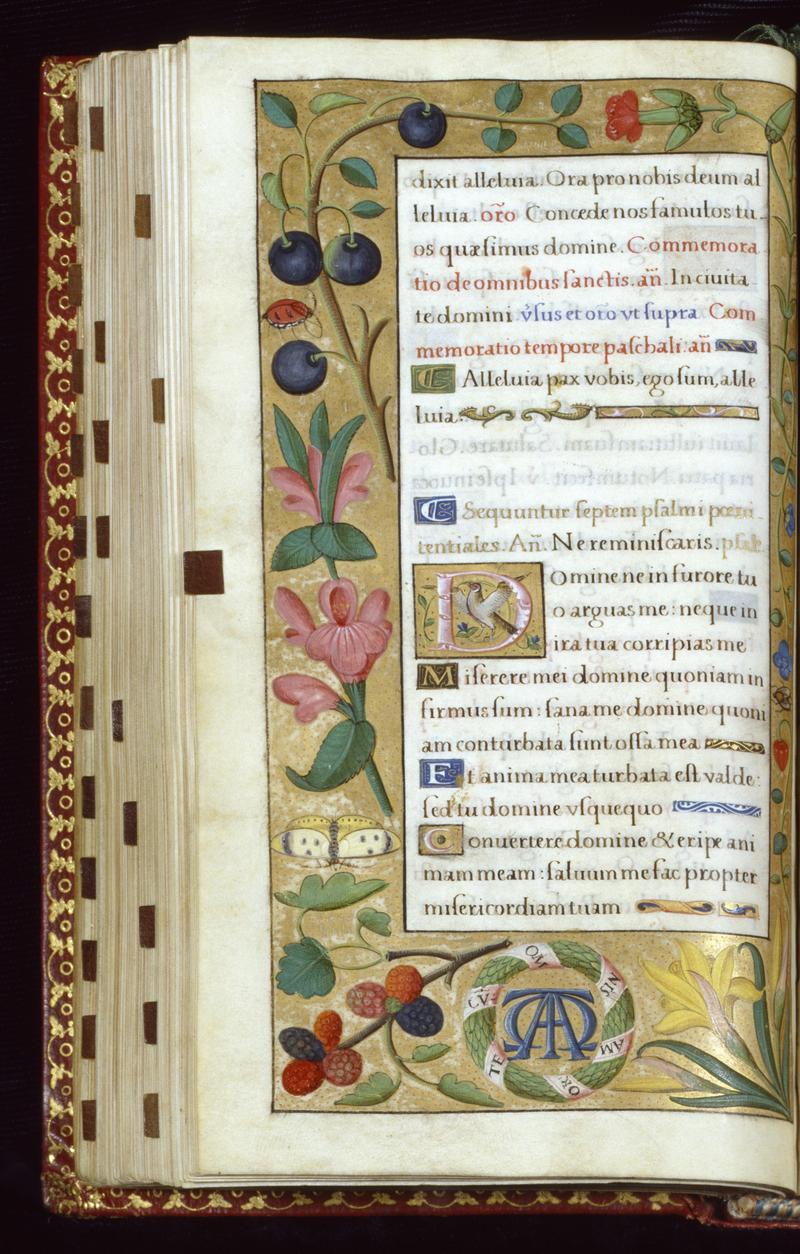 dixit alleluia. Ora pro nobis deum al
leluia. or̃o Concede nos famulos tu
os quæsimus domine. Commemora
tio de omnibus sanctis. añ. In ciuita
te domini v̓sus et oro vt supra Com
memoratio tempore paschali. añ
C Alleluia pax vobis, ego sum, alle
luia.
C Sequuntur septem psalmi pœni
tentiales. Añ. Ne reminiscaris. psal
Domine ne in furore tu
o arguas me: neque in
ira tua corripias me
Miserere mei domine quoniam in
firmus sum: sana me domine quoni
am conturbata sunt ossa mea
Et anima mea turbata est valde:
sed tu domine vsquequo
Conuertere domine & eripe ani
mam meam: saluum me fac propter
misericordiam tuam
OM
NIS
AM
OR
TE
CV̄